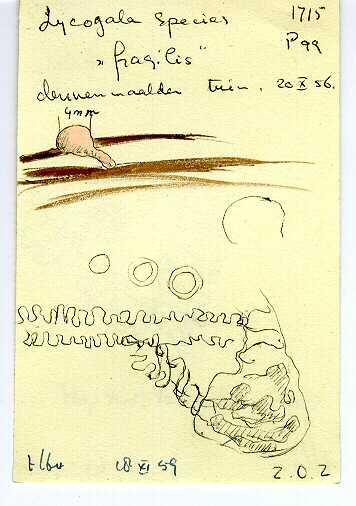 Lycogala species 1715
„fragilis" P99
dennenaalden tuin. 20 X 56.
4mm
Elba 18 XI 59 2.0.2